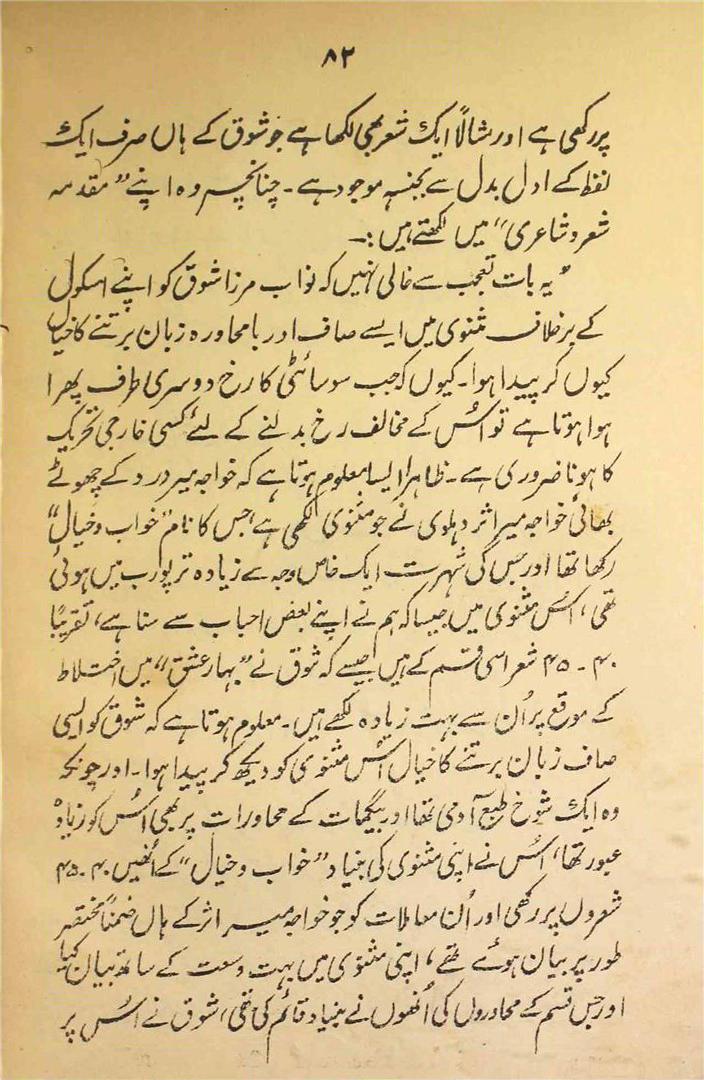 ۸۲
پر رکھی ہے اور مثالاً ایک شعر بھی لکھا ہے جو شوق کے ہاں صرف ایک
لفظ کے ادل بدل سے بجنسہ موجود ہے۔ چنانچہ وہ اپنے ”مقدمہ
شعر و شاعری“ میں لکھتے ہیں:۔
”یہ بات تعجب سے خالی نہیں کہ نواب مرزا شوق کو اپنے اسکول
کے برخلاف مثنوی میں ایسے صاف اور بامحاورہ زبان برتنے کا خیال
کیوں کر پیدا ہوا۔ کیوں کہ جب سوسائٹی کا رخ دوسری طرف پھرا
ہوا ہوتا ہے تو اُس کے مخالف رخ بدلنے کے لئے کسی خارجی تحریک
کا ہونا ضروری ہے۔ ظاہرا ایسا معلوم ہوتا ہے کہ خواجہ میر درد کے چھوٹے
بھائی خواجہ میر اثر دہلوی نے جو مثنوی لکھی ہے، جس کا نام ”خواب و خیال“
رکھا تھا اور جس کی شہرت ایک خاص وجہ سے زیادہ تر پورب میں ہوئی
تھی، اُس مثنوی میں جیسا کہ ہم نے اپنے بعض احباب سے سنا ہے، تقریباً
۴۰۔ ۴۵ شعر اسی قسم کے ہیں جیسے کہ شوق نے ”بہار عشق“ میں اختلاط
کے موقع پر اُن سے بہت زیادہ لکھے ہیں۔ معلوم ہوتا ہے کہ شوق کو ایسی
صاف زبان برتنے کا خیال اُس مثنوی کو دیکھ کر پیدا ہوا۔ اور چونکہ
وہ ایک شوخ طبع آدمی تھا اور بیگمات کے محاورات پر بھی اُس کو زیادہ
عبور تھا، اُس نے اپنی مثنوی کی بنیاد ”خواب و خیال“ کے اُنھیں ۴۰۔۴۵
شعروں پر رکھی اور اُن معاملات کو جو خواجہ میر اثر کے ہاں ضمناً مختصر
طور پر بیان ہوئے تھے، اپنی مثنوی میں بہت وسعت کے ساتھ بیان کیا
اور جس قسم کے محاوروں کی اُنھوں نے بنیاد قائم کی تھی، شوق نے اُس پر